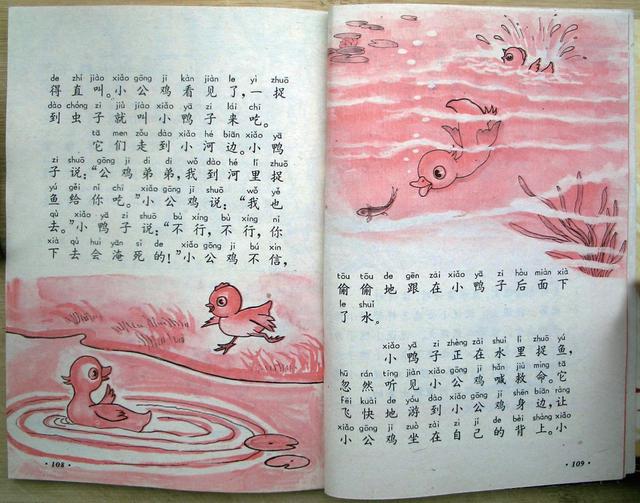 de zhí jiào xiǎo gōng jī kàn jiàn le yì zhuō
得直叫。小公鸡看见了，一捉
dào chóng zi jiù jiào xiǎo yā zi lái chī
到虫子就叫小鸭子来吃。
tā men zǒu dào xiǎo hé biān xiǎo yā
它们走到小河边。小鸭
zi shuō gōng jī dì di wǒ dào hé lǐ zhuō
子说：“公鸡弟弟，我到河里捉
yú gěi nǐ chī xiǎo gōng jī shuō wǒ yě
鱼给你吃。”小公鸡说：“我也
qù xiǎo yā zi shuō bù xíng bù xíng nǐ
去。”小鸭子说：“不行，不行，你
xià qù huì yān sǐ de xiǎo gōng jī bú xìn
下去会淹死的！”小公鸡不信，
·108·
tōu tōu de gēn zài xiǎo yā zi hòu miàn xià
偷偷地跟在小鸭子后面下
le shuǐ
了水。
xiǎo yā zi zhèng zài shuǐ lǐ zhuō yú
小鸭子正在水里捉鱼，
hū rán tīng jiàn xiǎo gōng jī hǎn jiù mìng tā
忽然听见小公鸡喊救命。它
fēi kuài de yóu dào xiǎo gōng jī shēn biān ràng
飞快地游到小公鸡身边，让
xiǎo gōng jī zuò zài zì jǐ de bèi shàng xiǎo
小公鸡坐在自己的背上。小
·109·